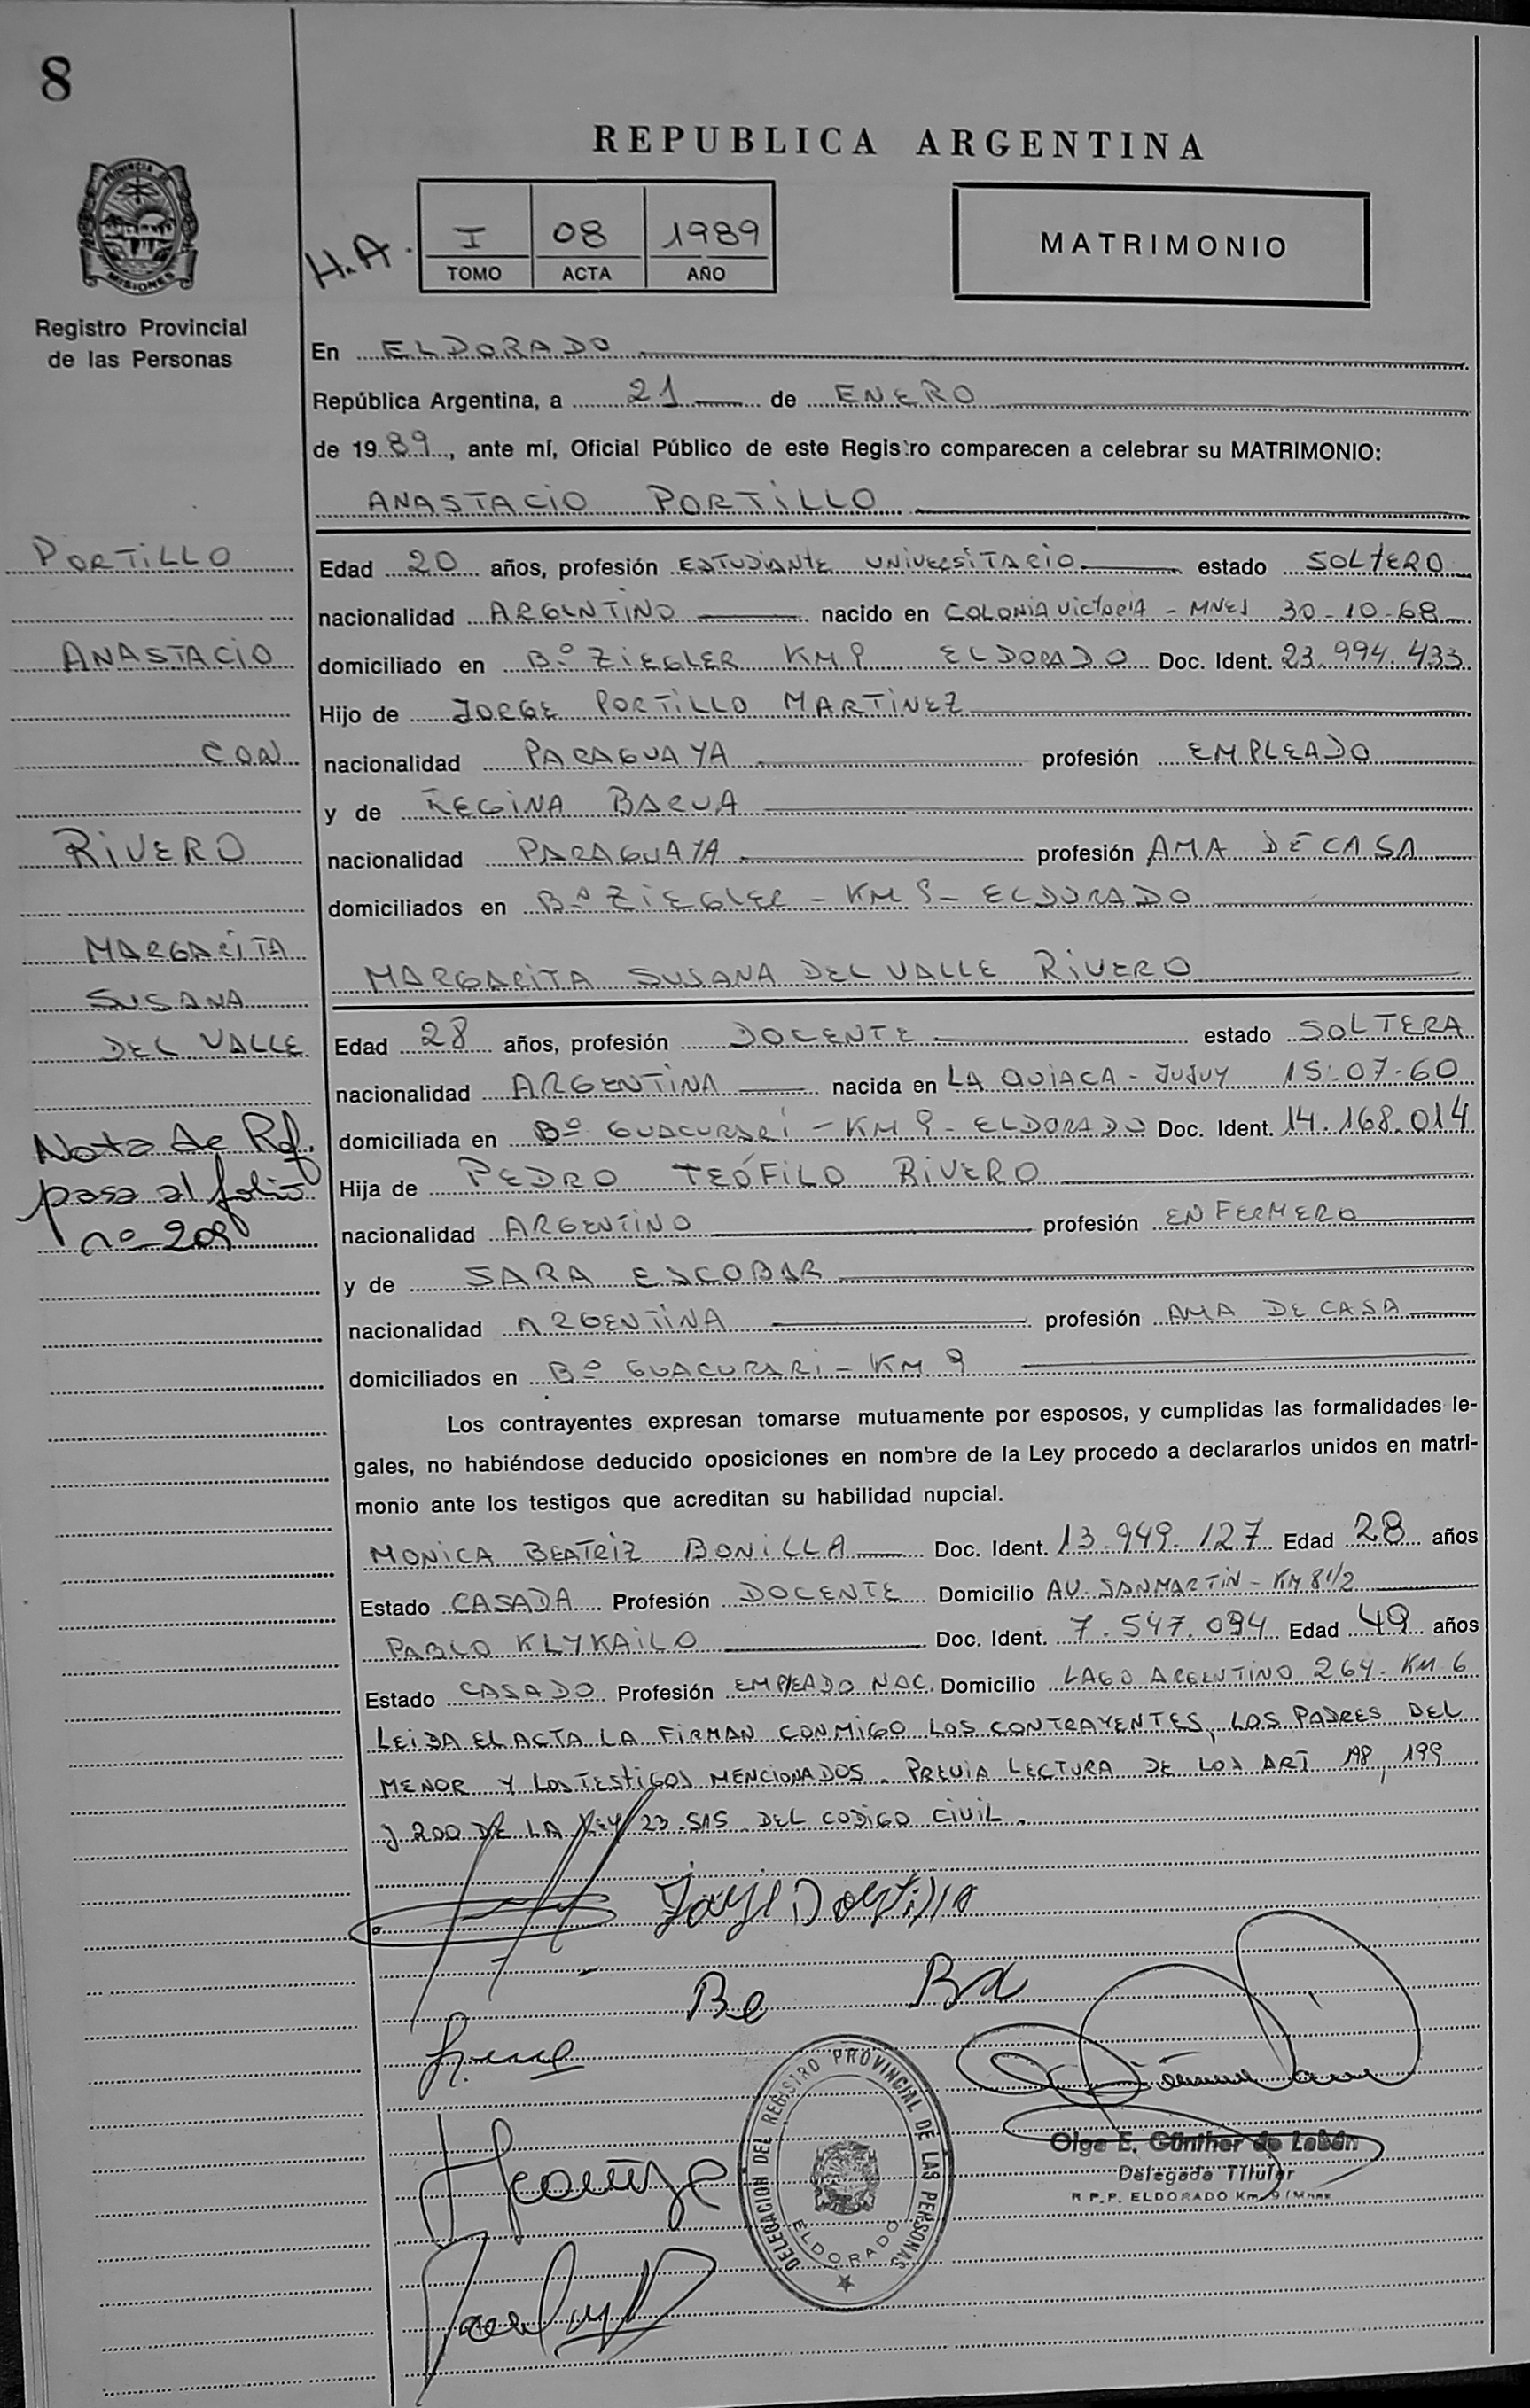 8
REPUBLICA ARGENTINA
PROVINCIA DE
MISIONES
Registro Provincial
de las Personas
H.A.
I 08 1989
TOMO ACTA AÑO
MATRIMONIO
En ELDORADO
República Argentina, a 21 de ENERO
de 1989, ante mí, Oficial Público de este Registro comparecen a celebrar su MATRIMONIO:
ANASTACIO PORTILLO
PORTILLO
ANASTACIO
CON
RIVERO
MARGARITA
SUSANA
DEL VALLE
Nota de Ref.
pasa al folio
nº 209
Edad 20 años, profesión ESTUDIANTE UNIVERSITARIO estado SOLTERO
nacionalidad ARGENTINO nacido en COLONIA VICTORIA - MNES 30-10-68
domiciliado en Bº ZIEGLER KM 9 ELDORADO Doc. Ident. 23.994.433
Hijo de JORGE PORTILLO MARTINEZ
nacionalidad PARAGUAYA profesión EMPLEADO
y de REGINA BARUA
nacionalidad PARAGUAYA profesión AMA DE CASA
domiciliados en Bº ZIEGLER - KM 9 - ELDORADO
MARGARITA SUSANA DEL VALLE RIVERO
Edad 28 años, profesión DOCENTE estado SOLTERA
nacionalidad ARGENTINA nacida en LA QUIACA - JUJUY 15-07-60
domiciliada en Bº GUACURARÍ - KM 9 - ELDORADO Doc. Ident. 14.168.014
Hija de PEDRO TEÓFILO RIVERO
nacionalidad ARGENTINO profesión ENFERMERO
y de SARA ESCOBAR
nacionalidad ARGENTINA profesión AMA DE CASA
domiciliados en Bº GUACURARI - KM 9
Los contrayentes expresan tomarse mutuamente por esposos, y cumplidas las formalidades le-
gales, no habiéndose deducido oposiciones en nombre de la Ley procedo a declararlos unidos en matri-
monio ante los testigos que acreditan su habilidad nupcial.
MONICA BEATRIZ BONILLA Doc. Ident. 13.949.127 Edad 28 años
Estado CASADA Profesión DOCENTE Domicilio AV. SAN MARTIN - KM 8 1/2
PABLO KLYKAILO Doc. Ident. 7.547.094 Edad 49 años
Estado CASADO Profesión EMPLEADO NAC. Domicilio LAGO ARGENTINO 264 - KM 6
LEIDA EL ACTA LA FIRMAN CONMIGO LOS CONTRAYENTES, LOS PADRES DEL
MENOR Y LOS TESTIGOS MENCIONADOS. PREVIA LECTURA DE LOS ART 198, 199
y 200 DE LA LEY 23.515 DEL CODIGO CIVIL.
Jorge Portillo
Be Ba
DELEGACION DEL REGISTRO PROVINCIAL DE LAS PERSONAS
ELDORADO
Olga E. Günther de Labán
Delegada Titular
R.P.P. ELDORADO Km. 9 (Mnes